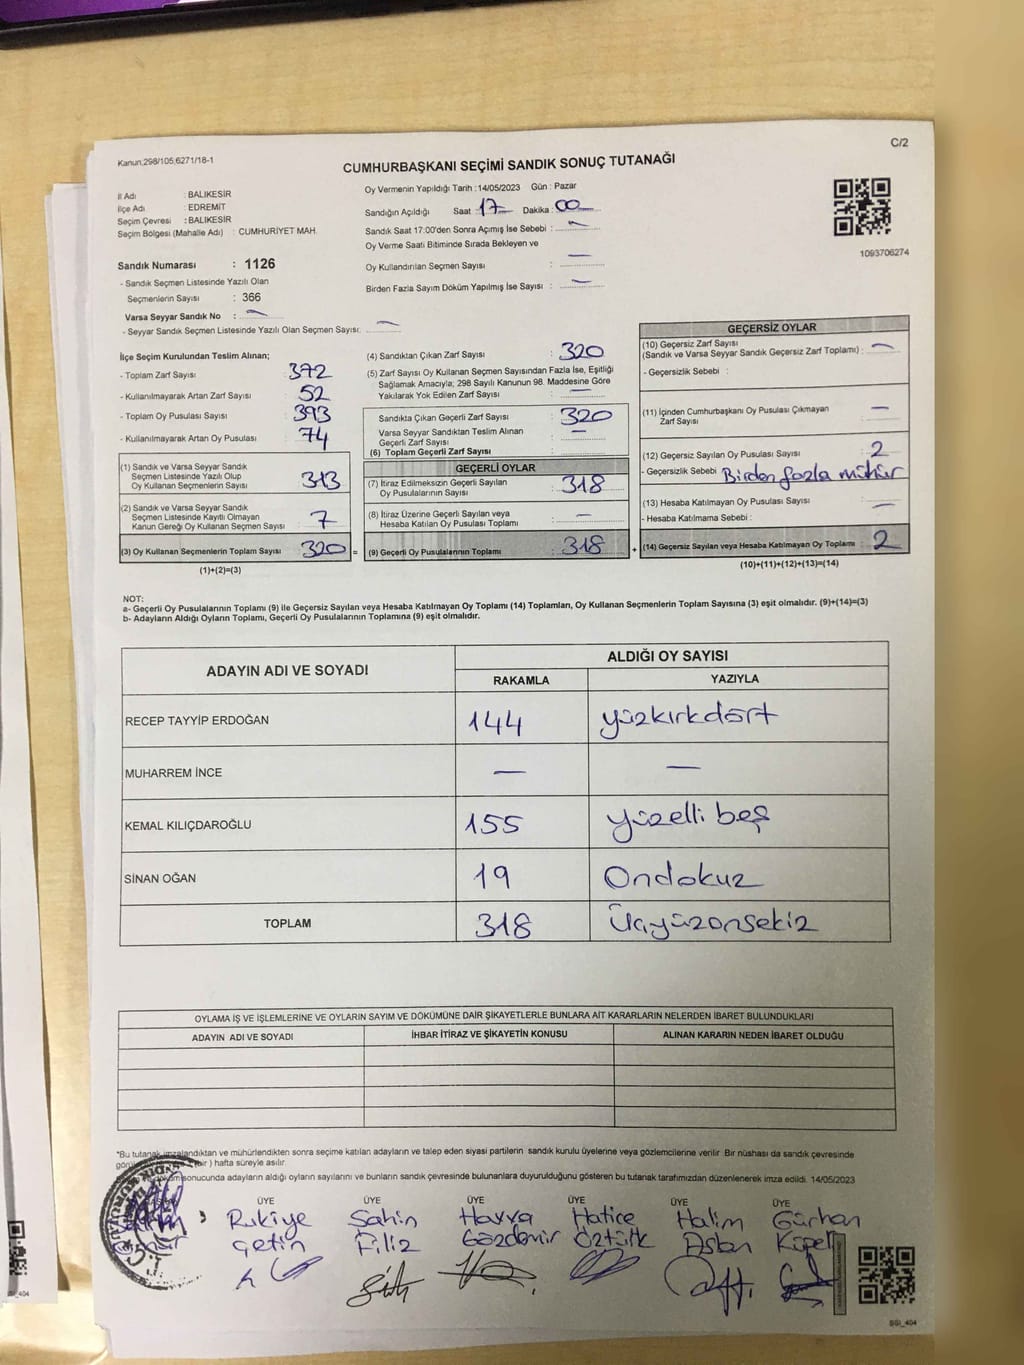 C/2
Kanun,298/105,6271/18-1
CUMHURBAŞKANI SEÇİMİ SANDIK SONUÇ TUTANAĞI
İl Adı : BALIKESİR
İlçe Adı : EDREMİT
Seçim Çevresi : BALIKESİR
Seçim Bölgesi (Mahalle Adı) : CUMHURİYET MAH.
Oy Vermenin Yapıldığı Tarih : 14/05/2023 Gün : Pazar
Sandığın Açıldığı Saat : 17 Dakika : 00
Sandık Saat 17:00'den Sonra Açımış İse Sebebi : —
Oy Verme Saati Bitiminde Sırada Bekleyen ve
Oy Kullandırılan Seçmen Sayısı : —
Birden Fazla Sayım Döküm Yapılmış İse Sayısı : —
1093706274
Sandık Numarası : 1126
- Sandık Seçmen Listesinde Yazılı Olan
Seçmenlerin Sayısı : 366
Varsa Seyyar Sandık No : —
- Seyyar Sandık Seçmen Listesinde Yazılı Olan Seçmen Sayısı: —
İlçe Seçim Kurulundan Teslim Alınan;
- Toplam Zarf Sayısı : 372
- Kullanılmayarak Artan Zarf Sayısı : 52
- Toplam Oy Pusulası Sayısı : 393
- Kullanılmayarak Artan Oy Pusulası : 74
(1) Sandık ve Varsa Seyyar Sandık
Seçmen Listesinde Yazılı Olup
Oy Kullanan Seçmenlerin Sayısı : 313
(2) Sandık ve Varsa Seyyar Sandık
Seçmen Listesinde Kayıtlı Olmayan
Kanun Gereği Oy Kullanan Seçmen Sayısı : 7
(3) Oy Kullanan Seçmenlerin Toplam Sayısı : 320 =
(1)+(2)=(3)
(4) Sandıktan Çıkan Zarf Sayısı : 320
(5) Zarf Sayısı Oy Kullanan Seçmen Sayısından Fazla İse, Eşitliği
Sağlamak Amacıyla; 298 Sayılı Kanunun 98. Maddesine Göre
Yakılarak Yok Edilen Zarf Sayısı : —
Sandıkta Çıkan Geçerli Zarf Sayısı : 320
Varsa Seyyar Sandıktan Teslim Alınan : —
Geçerli Zarf Sayısı
(6) Toplam Geçerli Zarf Sayısı :
GEÇERLİ OYLAR
(7) İtiraz Edilmeksizin Geçerli Sayılan
Oy Pusulalarının Sayısı : 318
(8) İtiraz Üzerine Geçerli Sayılan veya
Hesaba Katılan Oy Pusulası Toplamı : —
(9) Geçerli Oy Pusulalarının Toplamı : 318 +
GEÇERSİZ OYLAR
(10) Geçersiz Zarf Sayısı
(Sandık ve Varsa Seyyar Sandık Geçersiz Zarf Toplamı) : —
- Geçersizlik Sebebi :
(11) İçinden Cumhurbaşkanı Oy Pusulası Çıkmayan
Zarf Sayısı : —
(12) Geçersiz Sayılan Oy Pusulası Sayısı : 2
- Geçersizlik Sebebi : Birden fazla mühür
(13) Hesaba Katılmayan Oy Pusulası Sayısı : —
- Hesaba Katılmama Sebebi :
(14) Geçersiz Sayılan veya Hesaba Katılmayan Oy Toplamı : 2
(10)+(11)+(12)+(13)=(14)
NOT:
a- Geçerli Oy Pusulalarının Toplamı (9) ile Geçersiz Sayılan veya Hesaba Katılmayan Oy Toplamı (14) Toplamları, Oy Kullanan Seçmenlerin Toplam Sayısına (3) eşit olmalıdır. (9)+(14)=(3)
b- Adayların Aldığı Oyların Toplamı, Geçerli Oy Pusulalarının Toplamına (9) eşit olmalıdır.
ADAYIN ADI VE SOYADI ALDIĞI OY SAYISI
RAKAMLA YAZIYLA
RECEP TAYYİP ERDOĞAN 144 yüzkırkdört
MUHARREM İNCE — —
KEMAL KILIÇDAROĞLU 155 yüzelli beş
SİNAN OĞAN 19 Ondokuz
TOPLAM 318 Üçyüzonsekiz
OYLAMA İŞ VE İŞLEMLERİNE VE OYLARIN SAYIM VE DÖKÜMÜNE DAİR ŞİKAYETLERLE BUNLARA AİT KARARLARIN NELERDEN İBARET BULUNDUKLARI
ADAYIN ADI VE SOYADI İHBAR İTİRAZ VE ŞİKAYETİN KONUSU ALINAN KARARIN NEDEN İBARET OLDUĞU
*Bu tutanak imzalandıktan ve mühürlendikten sonra seçime katılan adayların ve talep eden siyasi partilerin sandık kurulu üyelerine veya gözlemcilerine verilir. Bir nüshası da sandık çevresinde
hafta süreyle asılır
sonucunda adayların aldığı oyların sayılarını ve bunların sandık çevresinde bulunanlara duyurulduğunu gösteren bu tutanak tarafımızdan düzenlenerek imza edildi. 14/05/2023
ÜYE ÜYE ÜYE ÜYE ÜYE ÜYE
Rukiye Şahin Havva Hatice Halim Gürhan
Çetin Filiz Gözdemir Öztürk Aslan
SSI_404